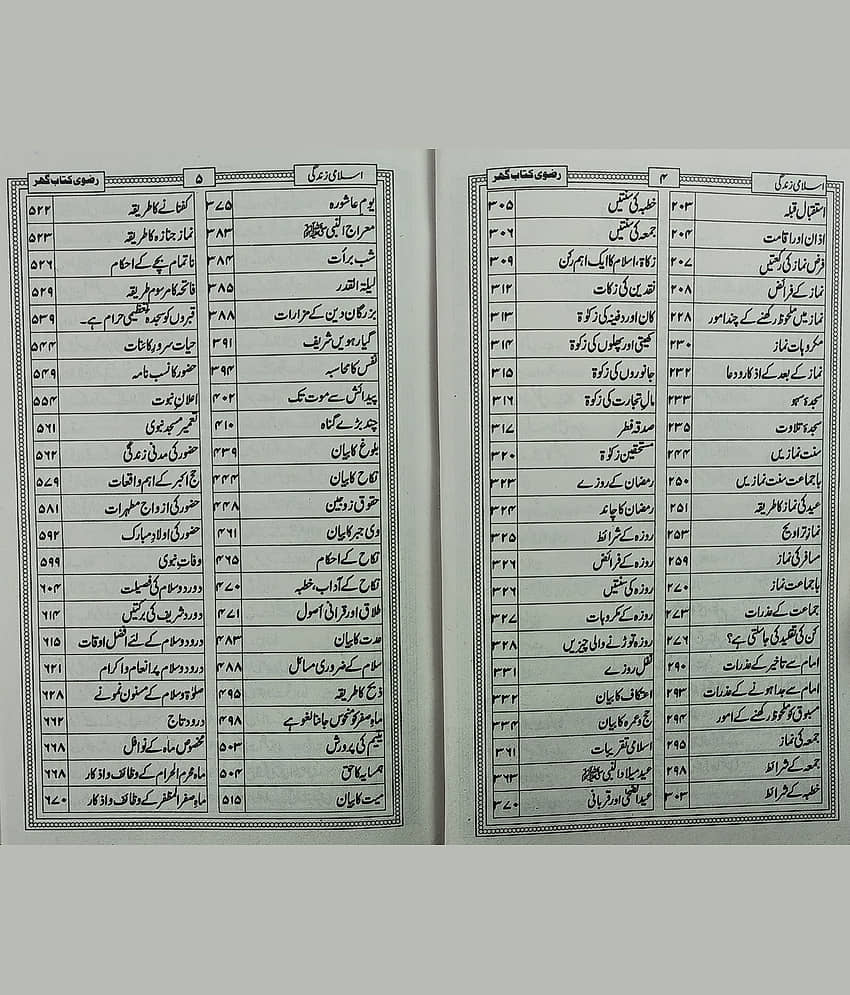 اسلامی زندگی
۴
رضوی کتاب گھر
استقبال قبلہ ۲۰۳
اذان اور اقامت ۲۰۴
فرض نماز کی رکعتیں ۲۰۷
نماز کے فرائض ۲۰۸
نماز میں ملحوظ رکھنے کے چند امور ۲۲۸
مکروہات نماز ۲۳۰
نماز کے بعد کے اذکار و دعا ۲۳۲
سجدۂ سہو ۲۳۳
سجدۂ تلاوت ۲۳۵
سنت نمازیں ۲۴۴
باجماعت سنت نمازیں ۲۵۰
عید کی نماز کا طریقہ ۲۵۱
نماز تراویح ۲۵۳
مسافر کی نماز ۲۵۹
باجماعت نماز ۲۷۰
جماعت کے عذرات ۲۷۳
کن کی تقلید کی جاسکتی ہے؟ ۲۷۶
امام سے تاخیر کے عذرات ۲۹۰
امام سے جدا ہونے کے عذرات ۲۹۳
مسبوق کو ملحوظ رکھنے کے امور ۲۹۴
جمعہ کی نماز ۲۹۵
جمعہ کے شرائط ۲۹۸
خطبہ کے شرائط ۳۰۳
خطبہ کی سنتیں ۳۰۵
جمعہ کی سنتیں ۳۰۶
زکاۃ، اسلام کا ایک اہم رکن ۳۰۹
نقدین کی زکات ۳۱۲
کان اور دفینہ کی زکوۃ ۳۱۳
کھیتی اور پھلوں کی زکوۃ ۳۱۴
جانوروں کی زکوۃ ۳۱۵
مالِ تجارت کی زکوۃ ۳۱۶
صدقۂ فطر ۳۱۷
مستحقین زکوۃ ۳۲۰
رمضان کے روزے ۳۲۳
رمضان کا چاند ۳۲۴
روزہ کے شرائط ۳۲۵
روزہ کے فرائض ۳۲۶
روزہ کی سنتیں ۳۲۶
روزہ کے مکروہات ۳۲۷
روزہ توڑنے والی چیزیں ۳۲۸
نفل روزے ۳۳۱
اعتکاف کا بیان ۳۳۲
حج و عمرہ کا بیان ۳۳۴
اسلامی تقریبات ۳۶۱
عید میلاد النبی ﷺ ۳۶۳
عید الضحیٰ اور قربانی ۳۷۰
اسلامی زندگی
۵
رضوی کتاب گھر
یوم عاشورہ ۳۷۵
معراج النبی ﷺ ۳۸۳
شب برأت ۳۸۴
لیلۃ القدر ۳۸۵
بزرگان دین کے مزارات ۳۸۸
گیارہویں شریف ۳۹۱
نفس کا محاسبہ ۳۹۴
پیدائش سے موت تک ۴۰۲
چند بڑے گناہ ۴۱۰
بلوغ کا بیان ۴۳۹
نکاح کا بیان ۴۴۴
حقوق زوجین ۴۴۸
وی جبر کا بیان ۴۶۱
نکاح کے احکام ۴۶۵
نکاح کے آداب، خطبہ ۴۷۰
طلاق اور قرانی اصول ۴۷۱
عدت کا بیان ۴۸۳
سلام کے ضروری مسائل ۴۸۸
ذبح کا طریقہ ۴۹۵
ماہِ صفر کو منحوس جاننا لغو ہے ۴۹۸
یتیم کی پرورش ۵۰۳
ہمسایہ کا حق ۵۰۴
میت کا بیان ۵۱۵
کفنانے کا طریقہ ۵۲۲
نماز جنازہ کا طریقہ ۵۲۳
ناتمام بچے کے احکام ۵۲۶
فاتحہ کا مرسوم طریقہ ۵۲۹
قبروں کو سجدہ تعظیمی حرام ہے۔ ۵۳۹
حیات سرور کائنات ۵۴۴
حضور کا نسب نامہ ۵۴۹
اعلانِ نبوت ۵۵۴
تعمیر مسجد نبوی ۵۶۱
حضور کی مدنی زندگی ۵۶۲
حج اکبر کے اہم واقعات ۵۷۹
حضور کی ازواج مطہرات ۵۸۱
حضور کی اولادِ مبارک ۵۹۲
وفاتِ نبوی ۵۹۹
درود و سلام کی فضیلت ۶۰۴
درود شریف کی برکتیں ۶۱۴
درود و سلام کے لئے افضل اوقات ۶۱۵
درود و سلام پر انعام و اکرام ۶۲۱
صلوٰۃ و سلام کے مسنون نمونے ۶۲۸
درود تاج ۶۶۲
مخصوص ماہ کے نوافل ۶۶۸
ماہ محرم الحرام کے وظائف و اذکار ۶۶۸
ماہِ صفر المظفر کے وظائف و اذکار ۶۷۰